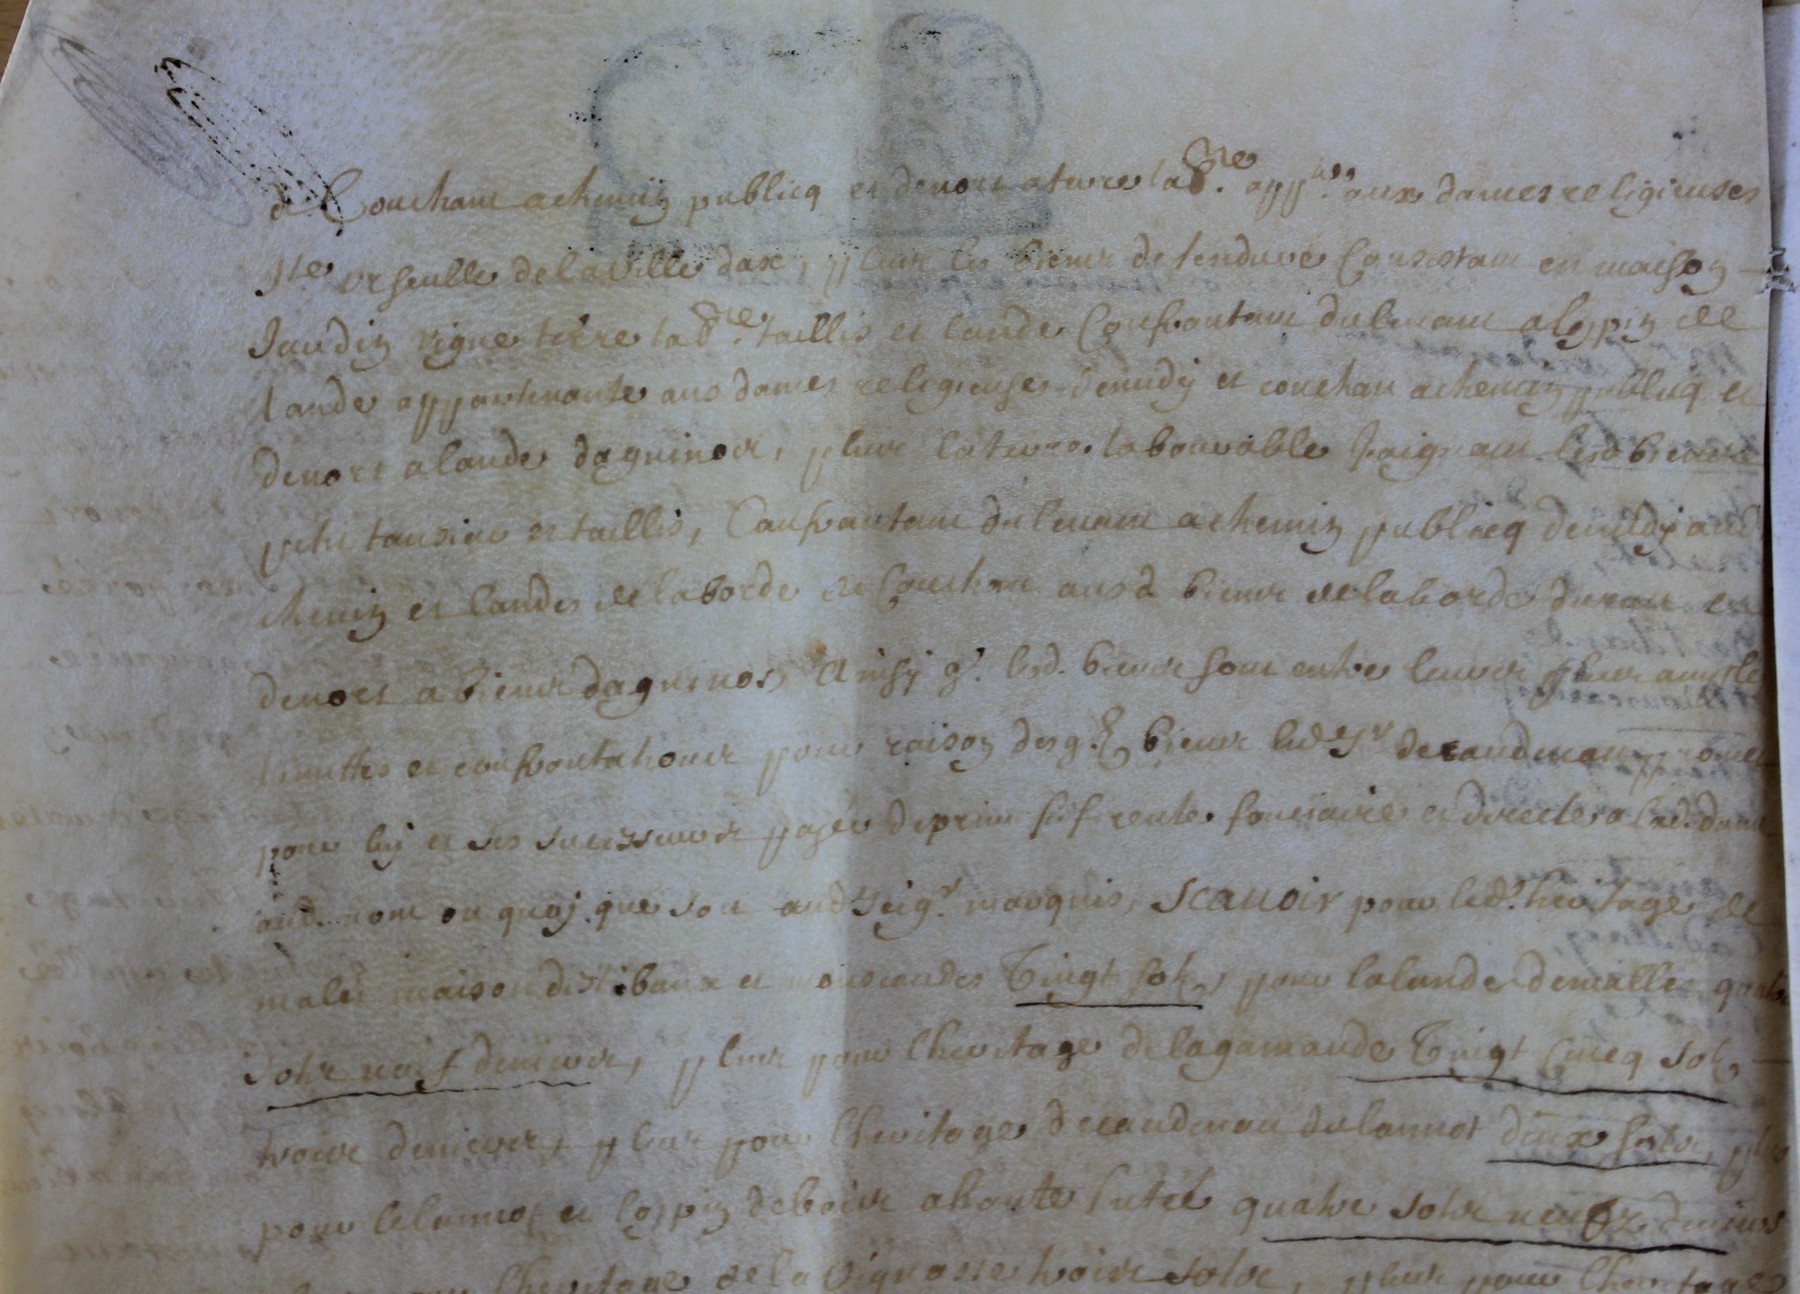 de Couchant a chemin publicq et de nort a terre lab.re app.tes aux dames religieuses
S.te urseulle de la ville dax, plus les biens de tenduve Consistant en maison
Jardin vigne terre lab.re taillis et lande Confrontant du levant a loppin de
lande appartenante aus dames religieuses de midy et couchant a chemin publicq et
de nort a lande daguinos, plus la terre labourable joignant lesd biens
taillis, Confrontant du levant a chemin publicq de midy aud
chemin et landes de laborde de Couchant ausd biens de laborde et
de nort a biens daguinos, Ainsy q.e lesd. biens sont entre leurs plus amples
limittes et confrontations pour raison desq.ls biens led Sr de candenau promet
pour luy et ses successeurs payer de prim fief rente fonciaire et directe a lad. dame
aud. nom ou quoy que soit aud Seig.r marquis, Scauoir pour led. heritage de
maison et Vingt sols, pour la lande quatre
sols neuf deniers, plus pour lheritage de lagamaude Vingt Cincq sols
trois deniers, plus pour lheritage de candenau du lannot deux sols, plus
pour le lannot et loppin de bois quatre sols neufz deniers
lheritage de la vignasse trois sols, plus pour lheritage